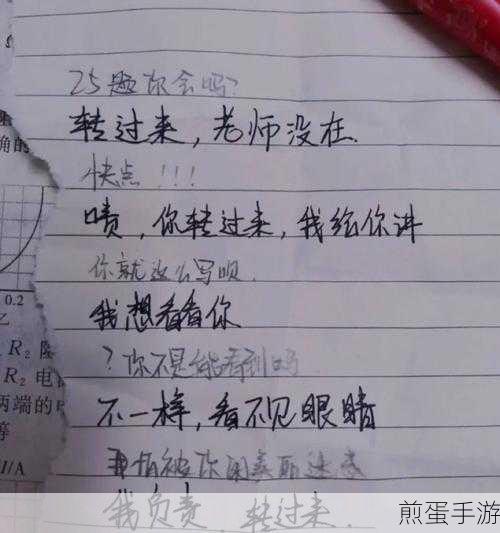 25题你会吗?
转过来，老师没在.
快点!!!
啧，你转过来，我给你讲
你就这么写呗.
我想看看你
?你不是能看到吗
不一样，看不见眼睛
我负责，转过来.
煎蛋手游
确的
0.2
乙
R₂
R₂ 电
两端的
等
I/A